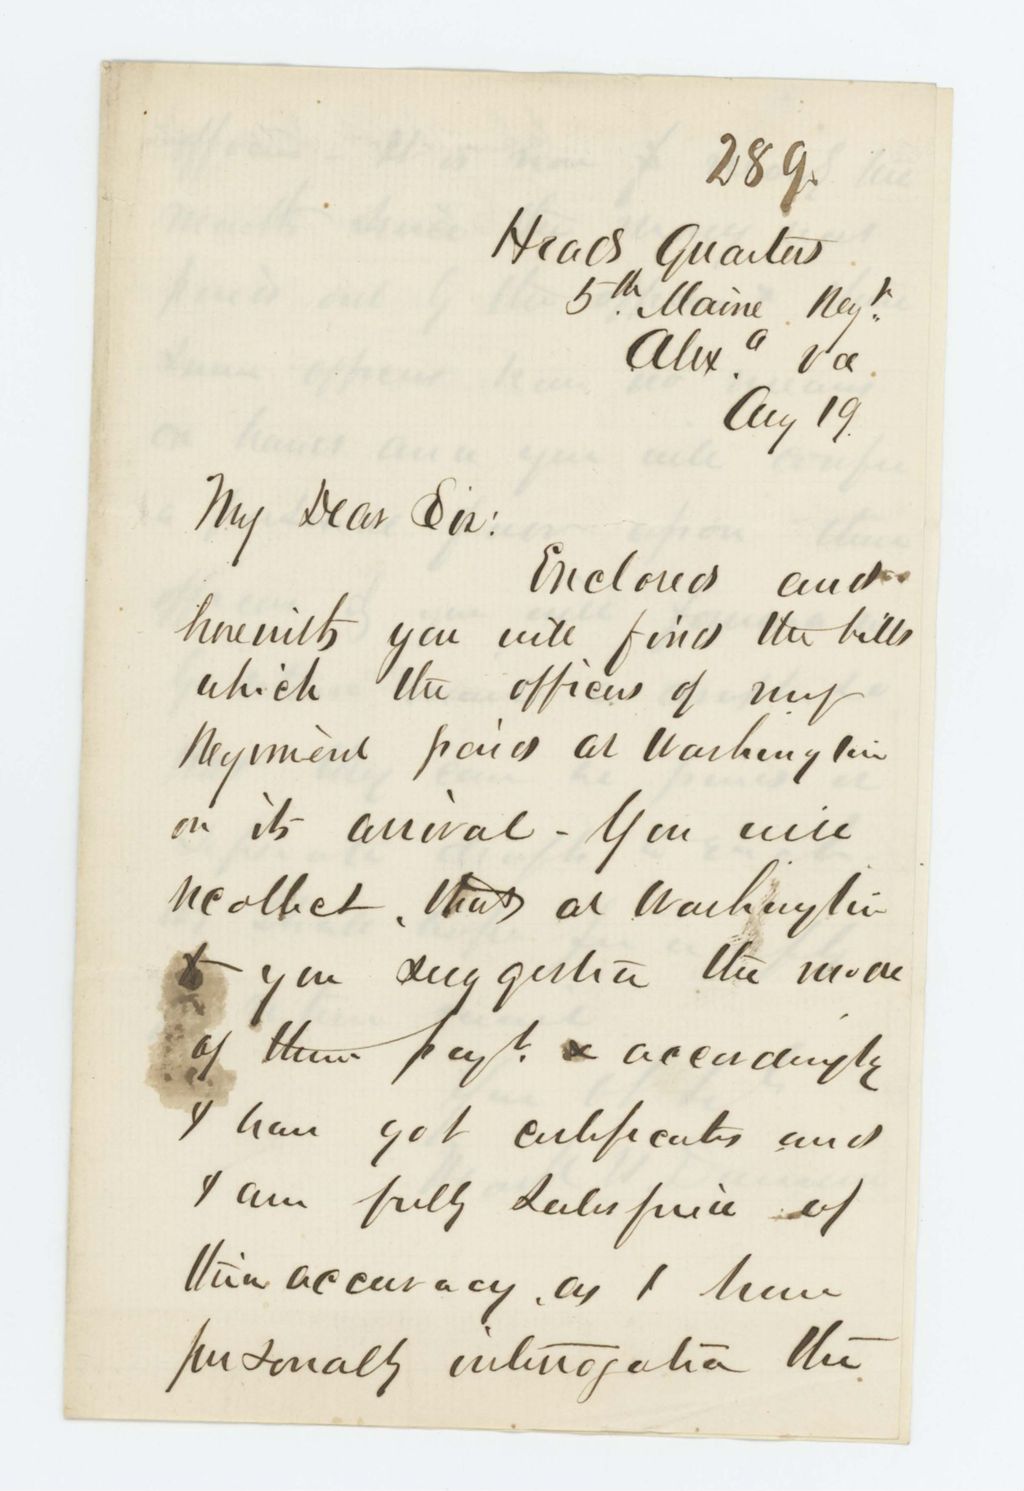 289.
Head Quarters
5th. Maine Regt.
Alexa. Va.
Aug 19.
My Dear Sir:
Enclosed and
herewith you will find the bills
which the officers of my
Regiment paid at Washington
on its arrival - You will
recollect, that at Washington
you suggested the mode
of their payt. & accordingly
I have got certificates and
I am fully satisfied of
their accuracy, as I have
personally interrogated the